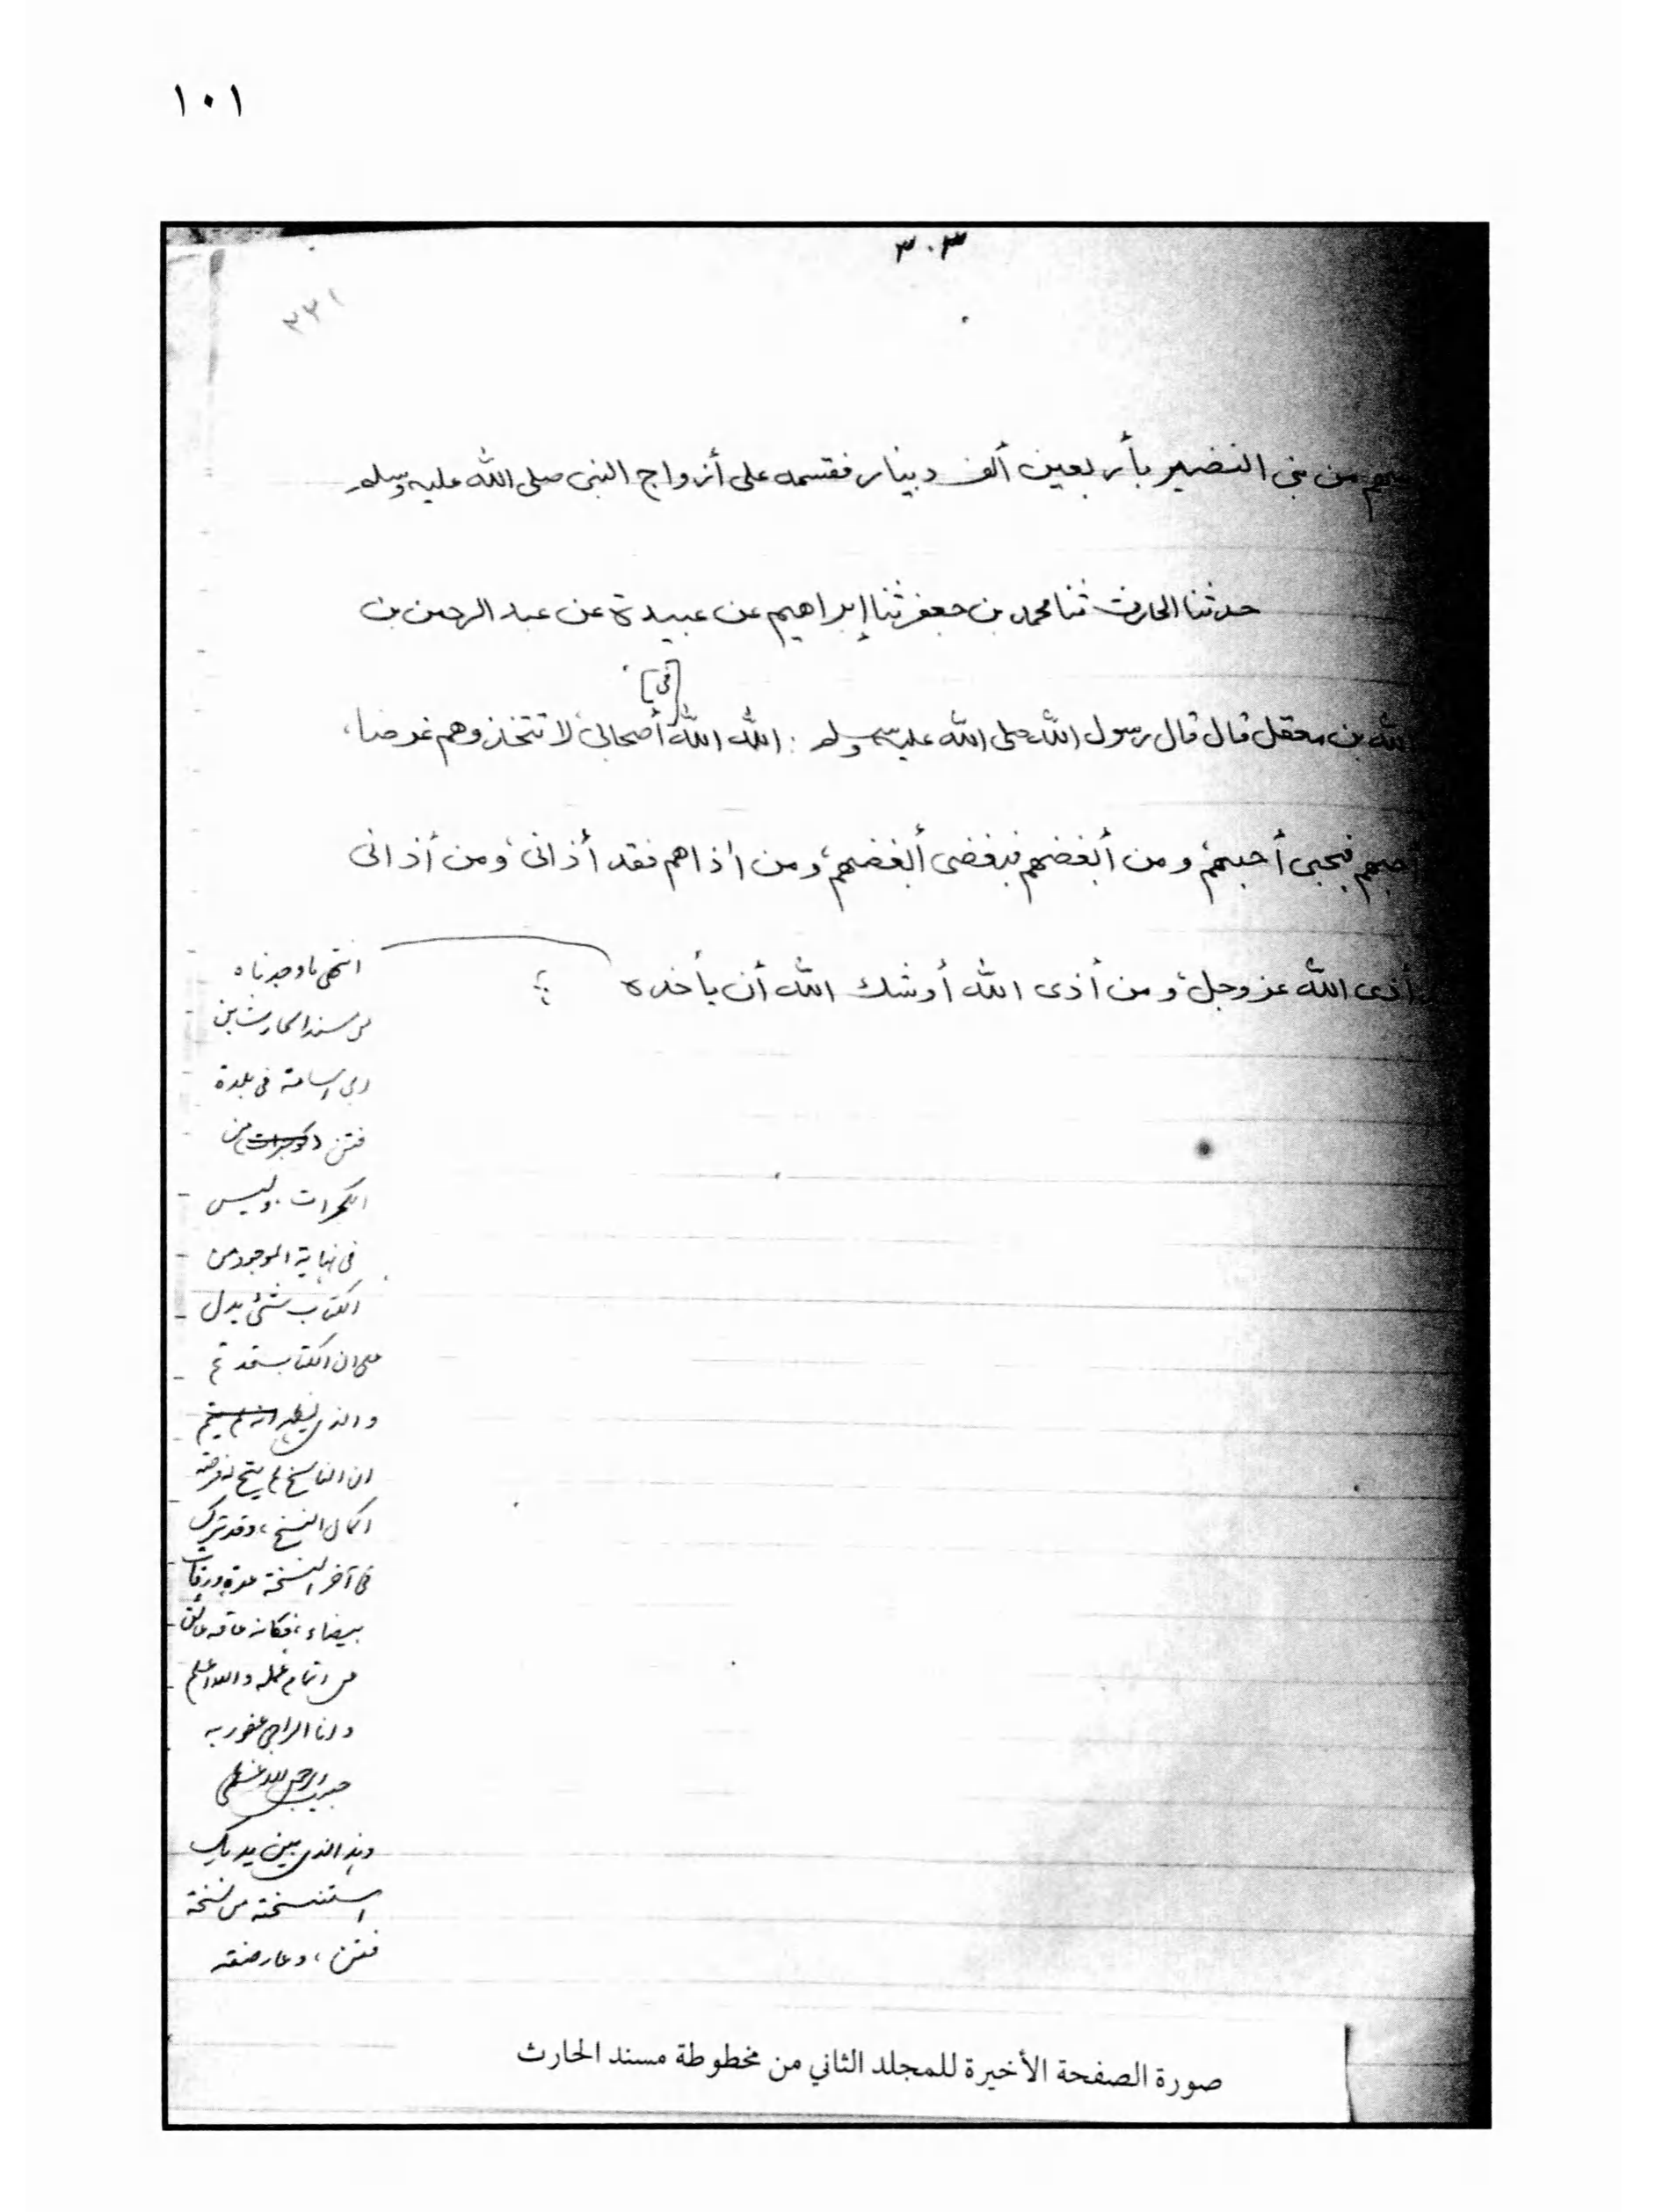 ١٠١
٣٠٣
٣٢١
من بني النضير بأربعين ألف دينار فقسمه على أزواج النبى صلى الله عليه وسلم
حدثنا الحارث ثنا محمد بن جعفر ثنا إبراهيم عن عبيدة عن عبد الرحمن بن
الله بن معقل قال قال رسول الله صلى الله عليه وسلم : الله الله [فى] أصحابى، لا تتخذوهم غرضا،
أحبهم فبحبى أحبهم، ومن أبغضهم فببغضى أبغضهم، ومن أذاهم فقد أذانى، ومن أذانى
أذى الله عز وجل، ومن أذى الله أوشك الله أن يأخذه
انتهى ما وجدناه
من مسند الحارث بن
ابى اسامة فى بلدة
فتن (كوجرات) من
الكجرات، وليس
فى نهاية الموجود من
الكتاب شئ يدل
على ان الكتاب قد تم
والذى يظهر انه لم يتم
ان الناسخ لم يتح له فرصة
اكمال النسخ، وقد ترك
فى آخر النسخة عدة ورقات
بيضاء، فكانه عاقه عائق
من اتمام عمله والله اعلم
وانا الراجى عفو ربه
حبيب الرحمن الاعظمى
وهذا الذى بين يديك
استنسخته من نسخة
فتن، وعارضته
صورة الصفحة الأخيرة للمجلد الثاني من مخطوطة مسند الحارث